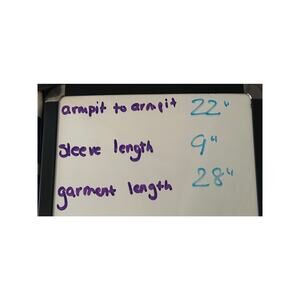 armpit to armpit 22"
sleeve length 9"
garment length 28"